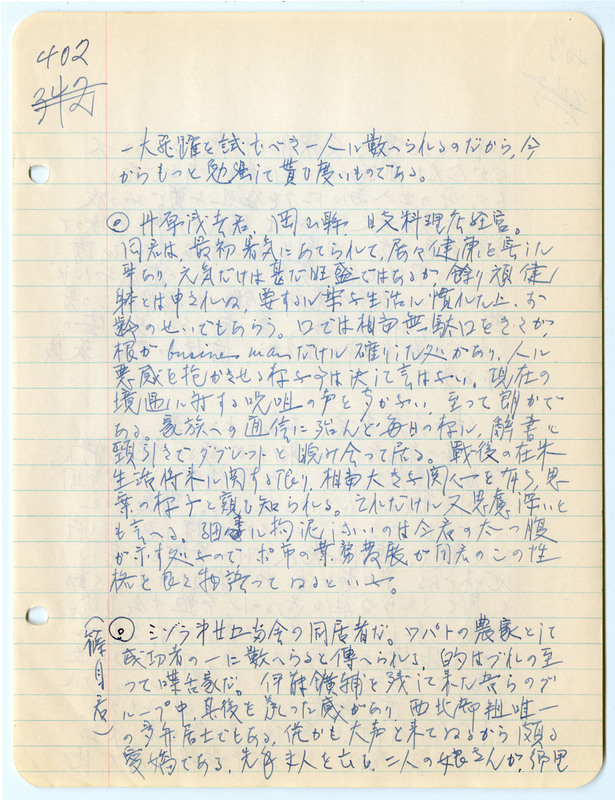 402
342
一大飛躍を試むべき一人に数へられるのだから、今
からもっと勉強して貰ひ度いものである。
◎ 丹原浅吉君、岡山縣 日支料理店経営。
同君は、最初暑気にあてられて、屡々健康を害した
事あり、元気だけは甚だ旺盛ではあるが 餘り頑健
躰とは申されぬ、要するに 生活に慣れた上、お
齢のせいでもあらう。口では相当無駄口をきくが、
根が business manだけに確りした処があり、人に
悪感を抱かせる様な事は決して言はない。現在の
境遇に対する呪咀の声を ない、至って朗かで
ある。家族への通信に殆んど毎日の様に、辞書と
頸引きでダブレットと睨み合って居る。戦後の在米
生活将来に関する限り、相当大きな関心を有ち、思
案の様子と 知られる。それだけに又思慮深いと
も言へる。細事に拘泥しないのは今君の太っ腹
が示す処なので ポ市の業務発展が同君のこの性
格を良く物語ってゐるといふ。
(篠目君)
◎ ミゾラ第廿五 舎の同居者だ。ワパトの農家として
成功者の一に数へらると傳へられる、 の至
って喋舌家だ。伊藤 輔を残して来た吾らのグ
ループ中、其後を た感があり、西北部組唯一
の多弁居士でもある、従かも大声と来てゐるから頗る
愛嬌である、先年夫人を亡ひ、二人の娘さんが、郷里